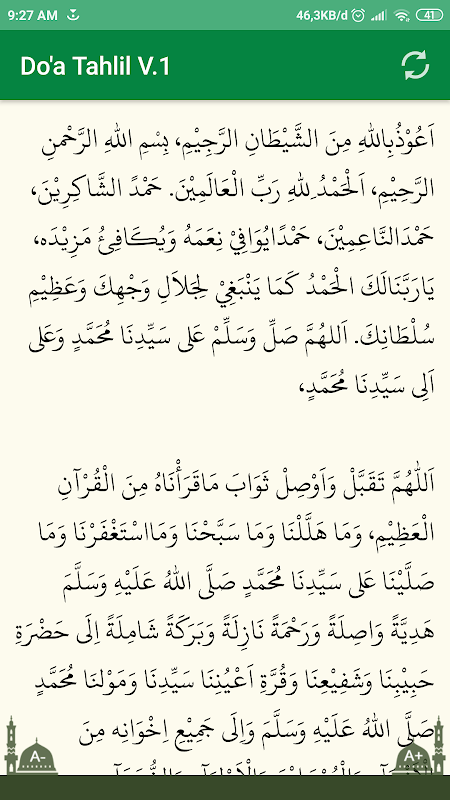 9:27 AM 46,3KB/d 41
Do'a Tahlil V.1
اَعُوْذُبِاللهِ مِنَ الشَّيْطَانِ الرَّجِيْمِ، بِسْمِ اللهِ الرَّحْمنِ
الرَّحِيْمِ، اَلْحَمْدُ ِللهِ رَبِّ الْعَالَمِيْنَ. حَمْدً الشَّاكِرِيْنَ،
حَمْدَالنَّاعِمِيْنَ، حَمْدًايُوَافِيْ نِعَمَهُ وَيُكَافِئُ مَزِيْدَه،
يَارَبَّنَالَكَ الْحَمْدُ كَمَا يَنْبَغِيْ لِجَلاَلِ وَجْهِكَ وَعَظِيْمِ
سُلْطَانِكَ. اَللهُمَّ صَلِّ وَسَلِّمْ عَلى سَيِّدِنَا مُحَمَّدٍ وَعَلى
اَلِى سَيِّدِنَا مُحَمَّدٍ،
اَللهُمَّ تَقَبَّلْ وَاَوْصِلْ ثَوَابَ مَاقَرَأْنَاهُ مِنَ الْقُرْآنِ
الْعَظِيْمِ، وَمَا هَلَّلْنَا وَمَا سَبَّحْنَا وَمَااسْتَغْفَرْنَا وَمَا
صَلَّيْنَا عَلى سَيِّدِنَا مُحَمَّدٍ صَلَّى اللهُ عَلَيْهِ وَسَلَّمَ
هَدِيَّةً وَاصِلَةً وَرَحْمَةً نَازِلَةً وَبَرَكَةً شَامِلَةً اِلَى حَضْرَةِ
حَبِيْبِنَا وَشَفِيْعِنَا وَقُرَّةِ اَعْيُنِنَا سَيِّدِنَا وَمَوْلنَا مُحَمَّدٍ
صَلَّى اللهُ عَلَيْهِ وَسَلَّمَ وَاِلَى جَمِيْعِ اِخْوَانِه مِنَ
A- A+